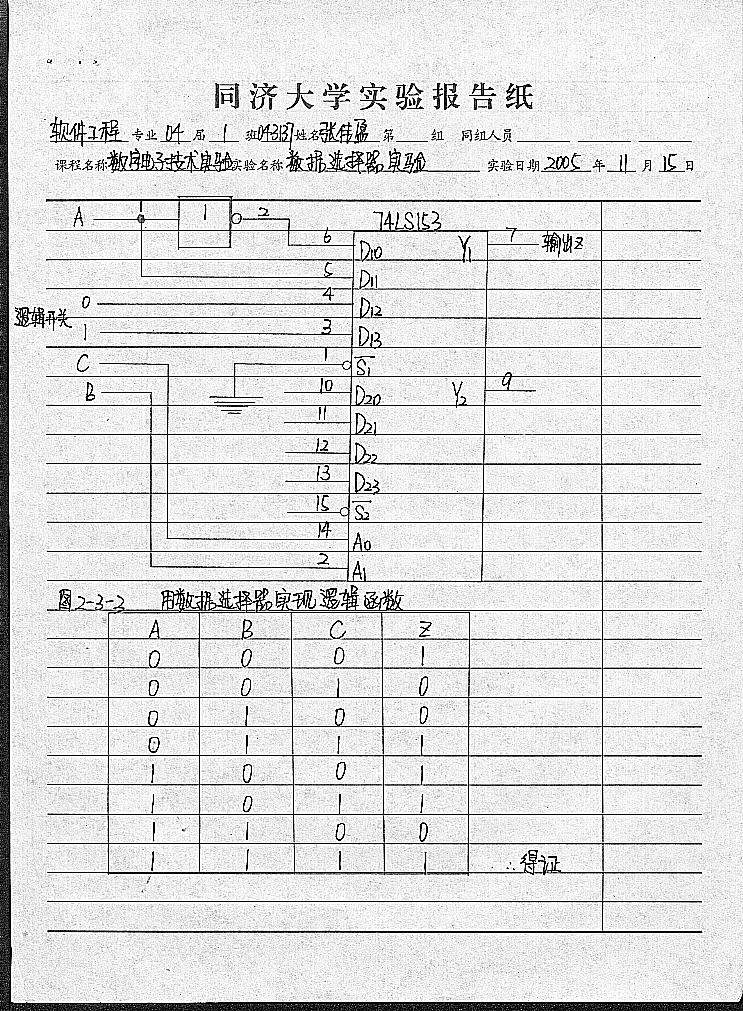 同济大学实验报告纸
软件工程 专业 04 届 1 班 043131 姓名 张佳盈 第 组 同组人员
课程名称 数字电子技术实验 实验名称 数据选择器实验 实验日期 2005 年 11 月 15 日
A 1 1 2 74LS153
6 D10 Y1 7 输出Z
5 D11
0 4 D12
逻辑开关
1 3 D13
C 1 S1
B 10 D20 Y2 9
11 D21
12 D22
13 D23
15 S2
14 A0
2 A1
图2-3-3 用数据选择器实现逻辑函数
A B C Z
0 0 0 1
0 0 1 0
0 1 0 0
0 1 1 1
1 0 0 1
1 0 1 1
1 1 0 0
1 1 1 1 ∴得证